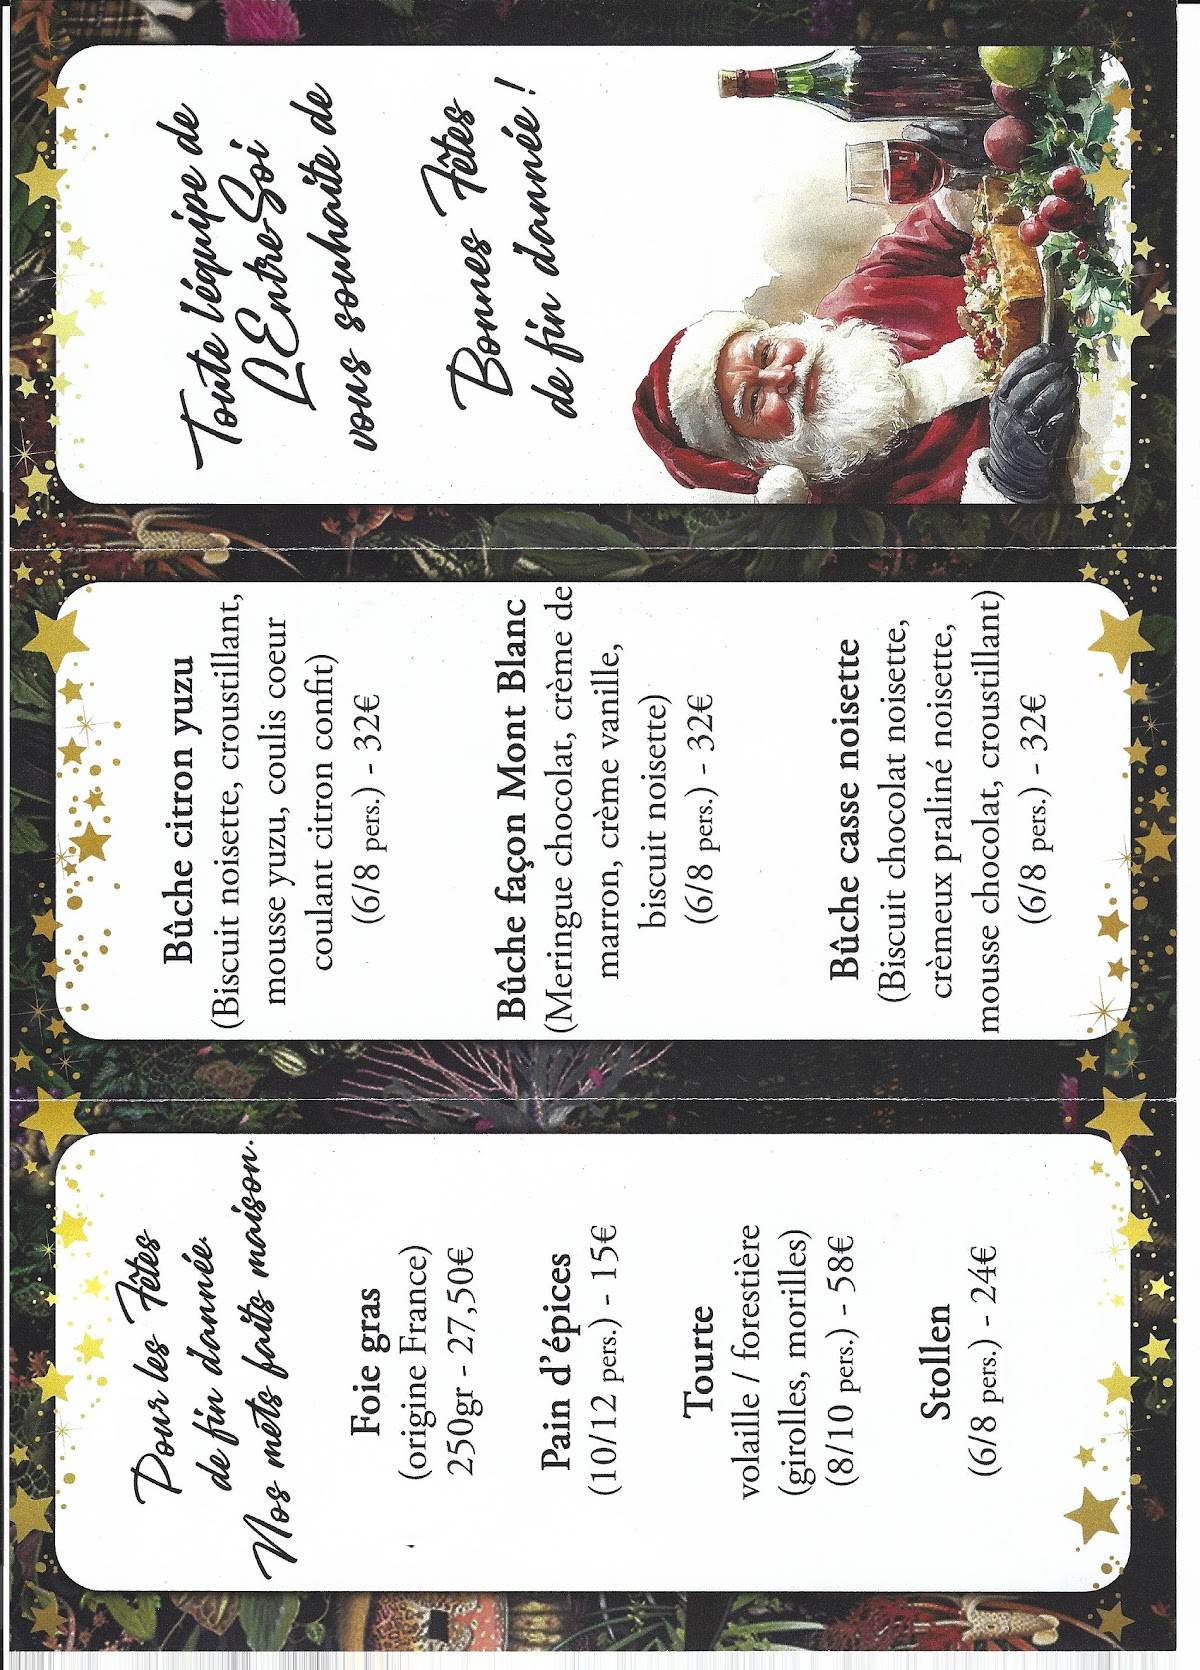 Pour les Fêtes
de fin d'année.
Nos mets faits maison.
Foie gras
(origine France)
250gr - 27,50€
Pain d'épices
(10/12 pers.) - 15€
Tourte
volaille / forestière
(girolles, morilles)
(8/10 pers.) - 58€
Stollen
(6/8 pers.) - 24€
Bûche citron yuzu
(Biscuit noisette, croustillant,
mousse yuzu, coulis coeur
coulant citron confit)
(6/8 pers.) - 32€
Bûche façon Mont Blanc
(Meringue chocolat, crème de
marron, crème vanille,
biscuit noisette)
(6/8 pers.) - 32€
Bûche casse noisette
(Biscuit chocolat noisette,
crèmeux praliné noisette,
mousse chocolat, croustillant)
(6/8 pers.) - 32€
Toute l'équipe de
L'Entre-Soi
vous souhaite de
Bonnes Fêtes
de fin d'année !